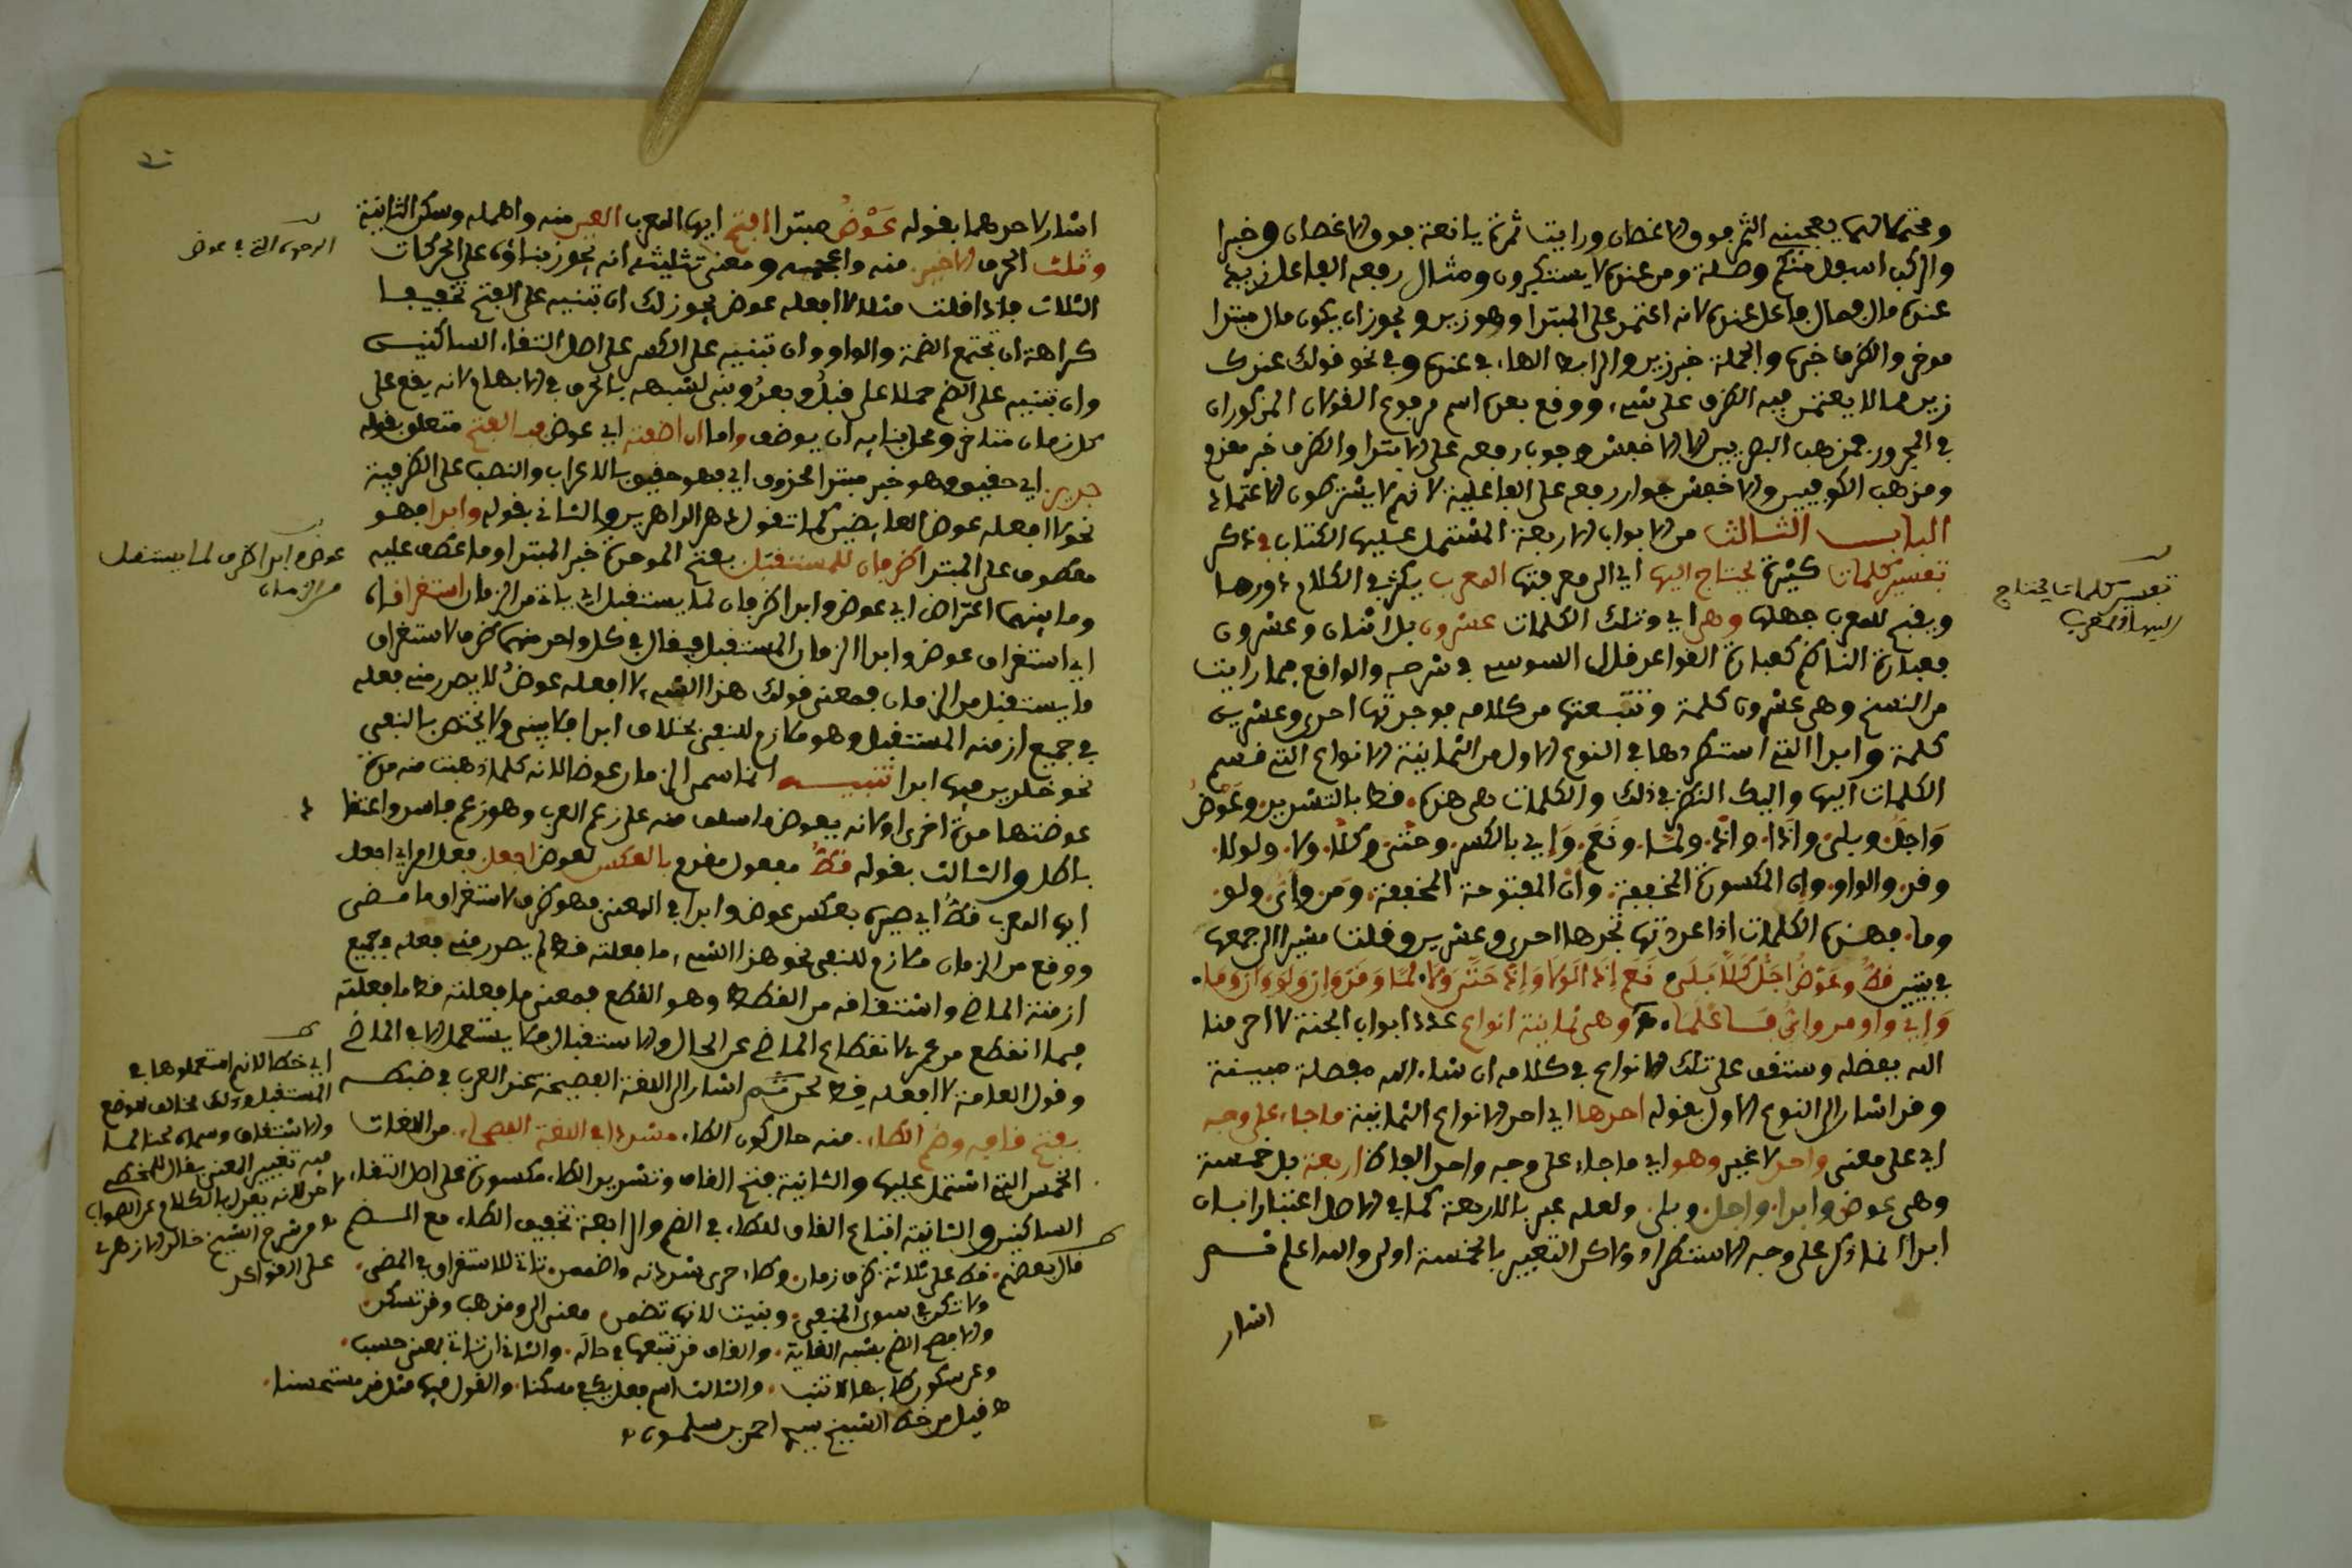 ومحتملاتهما يعجبني الثمر فوق الاغصان ورايت ثمرة يانعة فوق الاغصان وخبرا
والركب اسفل منكم وصلة ومن عنده لا يستكبرون ومثال رفعه الفاعل زيد
عنده مال فمال فاعل عنده لانه اعتمد على المبتدا وهو زيد ويجوز ان يكون مال مبتدا
موخر والظرف خبره والجملة خبر زيد والرابط الهاء في عنده وفي نحو قولك عندك
زيد مما لا يعتمد فيه الظرف على شيء ووقع بعده اسم مرفوع القولان المذكوران
في المجرور فمذهب البصريين الا الاخفش وجوب رفعه على الابتدا والظرف خبر مقدم
ومذهب الكوفيين والاخفش جواز رفعه على الفاعلية لانهم لا يشترطون الاعتماد
الباب الثالث من الابواب الاربعة المشتمل عليها الكتاب في ذكر
تفسير كلمات كثيرة يحتاج اليها اي الى معرفتها المعرب يكثر في الكلام دورها
ويقبح للمعرب جهلها وهي اي وتلك الكلمات عشرون بل اثنان وعشرون
فعبارة الناظم كعبارة القواعد قال السوسي في شرحه والواقع فيما رايت
من النسخ وهي عشرون كلمة وتتبعتها من كلامه فوجدتها احدى وعشرين
كلمة وابدا التي استطردها في النوع الاول من الثمانية الانواع التي قسم
الكلمات اليها واليك النظر في ذلك والكلمات هي هذه. قط بالتشديد وعوض
واجل وبلى. واذا. واذ. ولما. ونعم. واي بالكسر. وحتى وكلا. ولا. ولولا.
وقد. والواو. وان المكسورة المخففة. وان المفتوحة المخففة. ومن واي. ولو.
وما. فهذه الكلمات اذا عددتها تجدها احدى وعشرين وقلت مشيرا الى جمعها
في بيتين قط وعوض اجل كلا بلى نعم اذا لولا واذ حتى ولا. لما وقد وان ولو وان وما.
واي واو من واي فاعلما. وهي ثمانية انواع عدد ابواب الجنة لا احرمنا
الله بفضله وستقف على تلك الانواع في كلامه ان شاء الله مفصلة مبينة
وقد اشار الى النوع الاول بقوله احدها اي احد الانواع الثمانية ما جاء على وجه
اي على معنى واحد لا غير وهو اي ما جاء على وجه واحد الفاظ اربعة بل خمسة
وهي عوض وابدا. واجل. وبلى. ولعله عبر بالاربعة كما في الاصل اعتبارا بان
ابدا انما ذكر على وجه الاستطراد ولاكن التعبير بالخمسة اولى والله اعلم قسم
اشار
تفسير كلمات يحتاج
اليها المعرب
اشار لاحدهما بقوله عوض مبتدا افتح ايها المعرب العين منه واهمله وسكن الثانية
وثلث الحرف الاخير منه واعجمه ومعنى تثليثه انه يجوز بناؤه على الحركات
الثلاث فاذا قلت مثلا لا افعله عوض يجوز لك ان تبنيه على الفتح تخفيفا
كراهة ان تجتمع الضمة والواو وان تبنيه على الكسر على اصل التقاء الساكنين
وان تبنيه على الضم حملا على قبل وبعد وبني لشبهه بالحرف في الابهام لانه يقع على
كل زمان متاخر ومحل بنايه ان يوضف واما ان اضفته اي عوض فبالفتح متعلق بقوله
جدير اي حقيق وهو خبر مبتدا محذوف اي فهو حقيق بالاعراب والنصب على الظرفية
نحو لا افعله عوض العايضين كما تقول دهر الداهرين والثاني بقوله وابدا فهو
معطوف على المبتدا ظرفان للمستقبل بفتح الموحدة خبر المبتدا وما عطف عليه
وما بينهما اعتراض اي عوض وابدا ظرفان لما يستقبل اي ياتي من الزمان استغراقا
اي استغراق عوض وابدا الزمان المستقبل فيقال في كل واحد منهما ظرف لاستغراق
ما يستقبل من الزمان فمعنى قولك هذا الشيء لا افعله عوض لا يصدر مني فعله
في جميع ازمنة المستقبل وهو ملازم للنفي بخلاف ابدا فلا يبنى ولا يختص بالنفي
نحو خالدين فيها ابدا تنبيه انما سمي الزمان عوضا لانه كلما ذهبت منه مدة
عوضتها مدة اخرى او لانه يعوض ما سلف منه على زعم العرب وهو زعم فاسد واعتقاد
باطل والثالث بقوله قط مفعول مقدم بالعكس لعوض اجعل فعل امر اي اجعل
ايها المعرب قط اي صيره بعكس عوض وابدا في المعنى فهو ظرف لاستغراق ما مضى
ووقع من الزمان ملازم للنفي نحو هذا الشيء ما فعلته قط لم يصدر مني فعله في جميع
ازمنة الماضي واشتقاقه من القط وهو القطع فمعنى ما فعلته قط ما فعلته
فيما انقطع من عمري لانقطاع الماضي عن الحال والاستقبال فلا يستعمل الا في الماضي
وقول العامة لا افعله قط لحن ثم اشار الى اللغة الفصيحة عند العرب في ضبطه
بفتح قافه وضم الطاء. منه حال كون الطاء مشددا في اللغة الفصحاء. من اللغات
الخمس التي اشتمل عليها والثانية فتح القاف وتشديد الطاء مكسورة على اصل التقاء
الساكنين والثانية اتباع القاف للطاء في الضم والرابعة تخفيف الطاء مع الضم
قال بعضهم. قط على ثلاثة ظرف زمان. وطاء حرى شددنه واضممن. تاتي للاستغراق في المضي.
ولا تكن في سوى المنفي. وبنيت لانها تضمن معنى الى ومذهب وقد تسكن.
والافصح الضم بشبه الغاية. والقاف قد تتبعها في حالة. والثاني ان تاتي بمعنى حسب.
وعن سكون طايها لا تنب. والثالث اسم فعل يكفي مسكنا. والقول فيها مثل قد مستحسنا.
هـ قيل من خط الشيخ سيد احمد بن سلمون
الوجوه التي في عوض
عوض وابدا ظرف لما يستقبل
من الزمان
اي خطا لانهم استعملوها في
المستقبل وذلك مخالف للوضع
والاشتقاق وسماه لحنا لما
فيه تغيير المعنى يقال للمخطي
لاحن لانه يعدل بالكلام عن الصواب
هـ من شرح الشيخ خالد الازهري
على القواعد